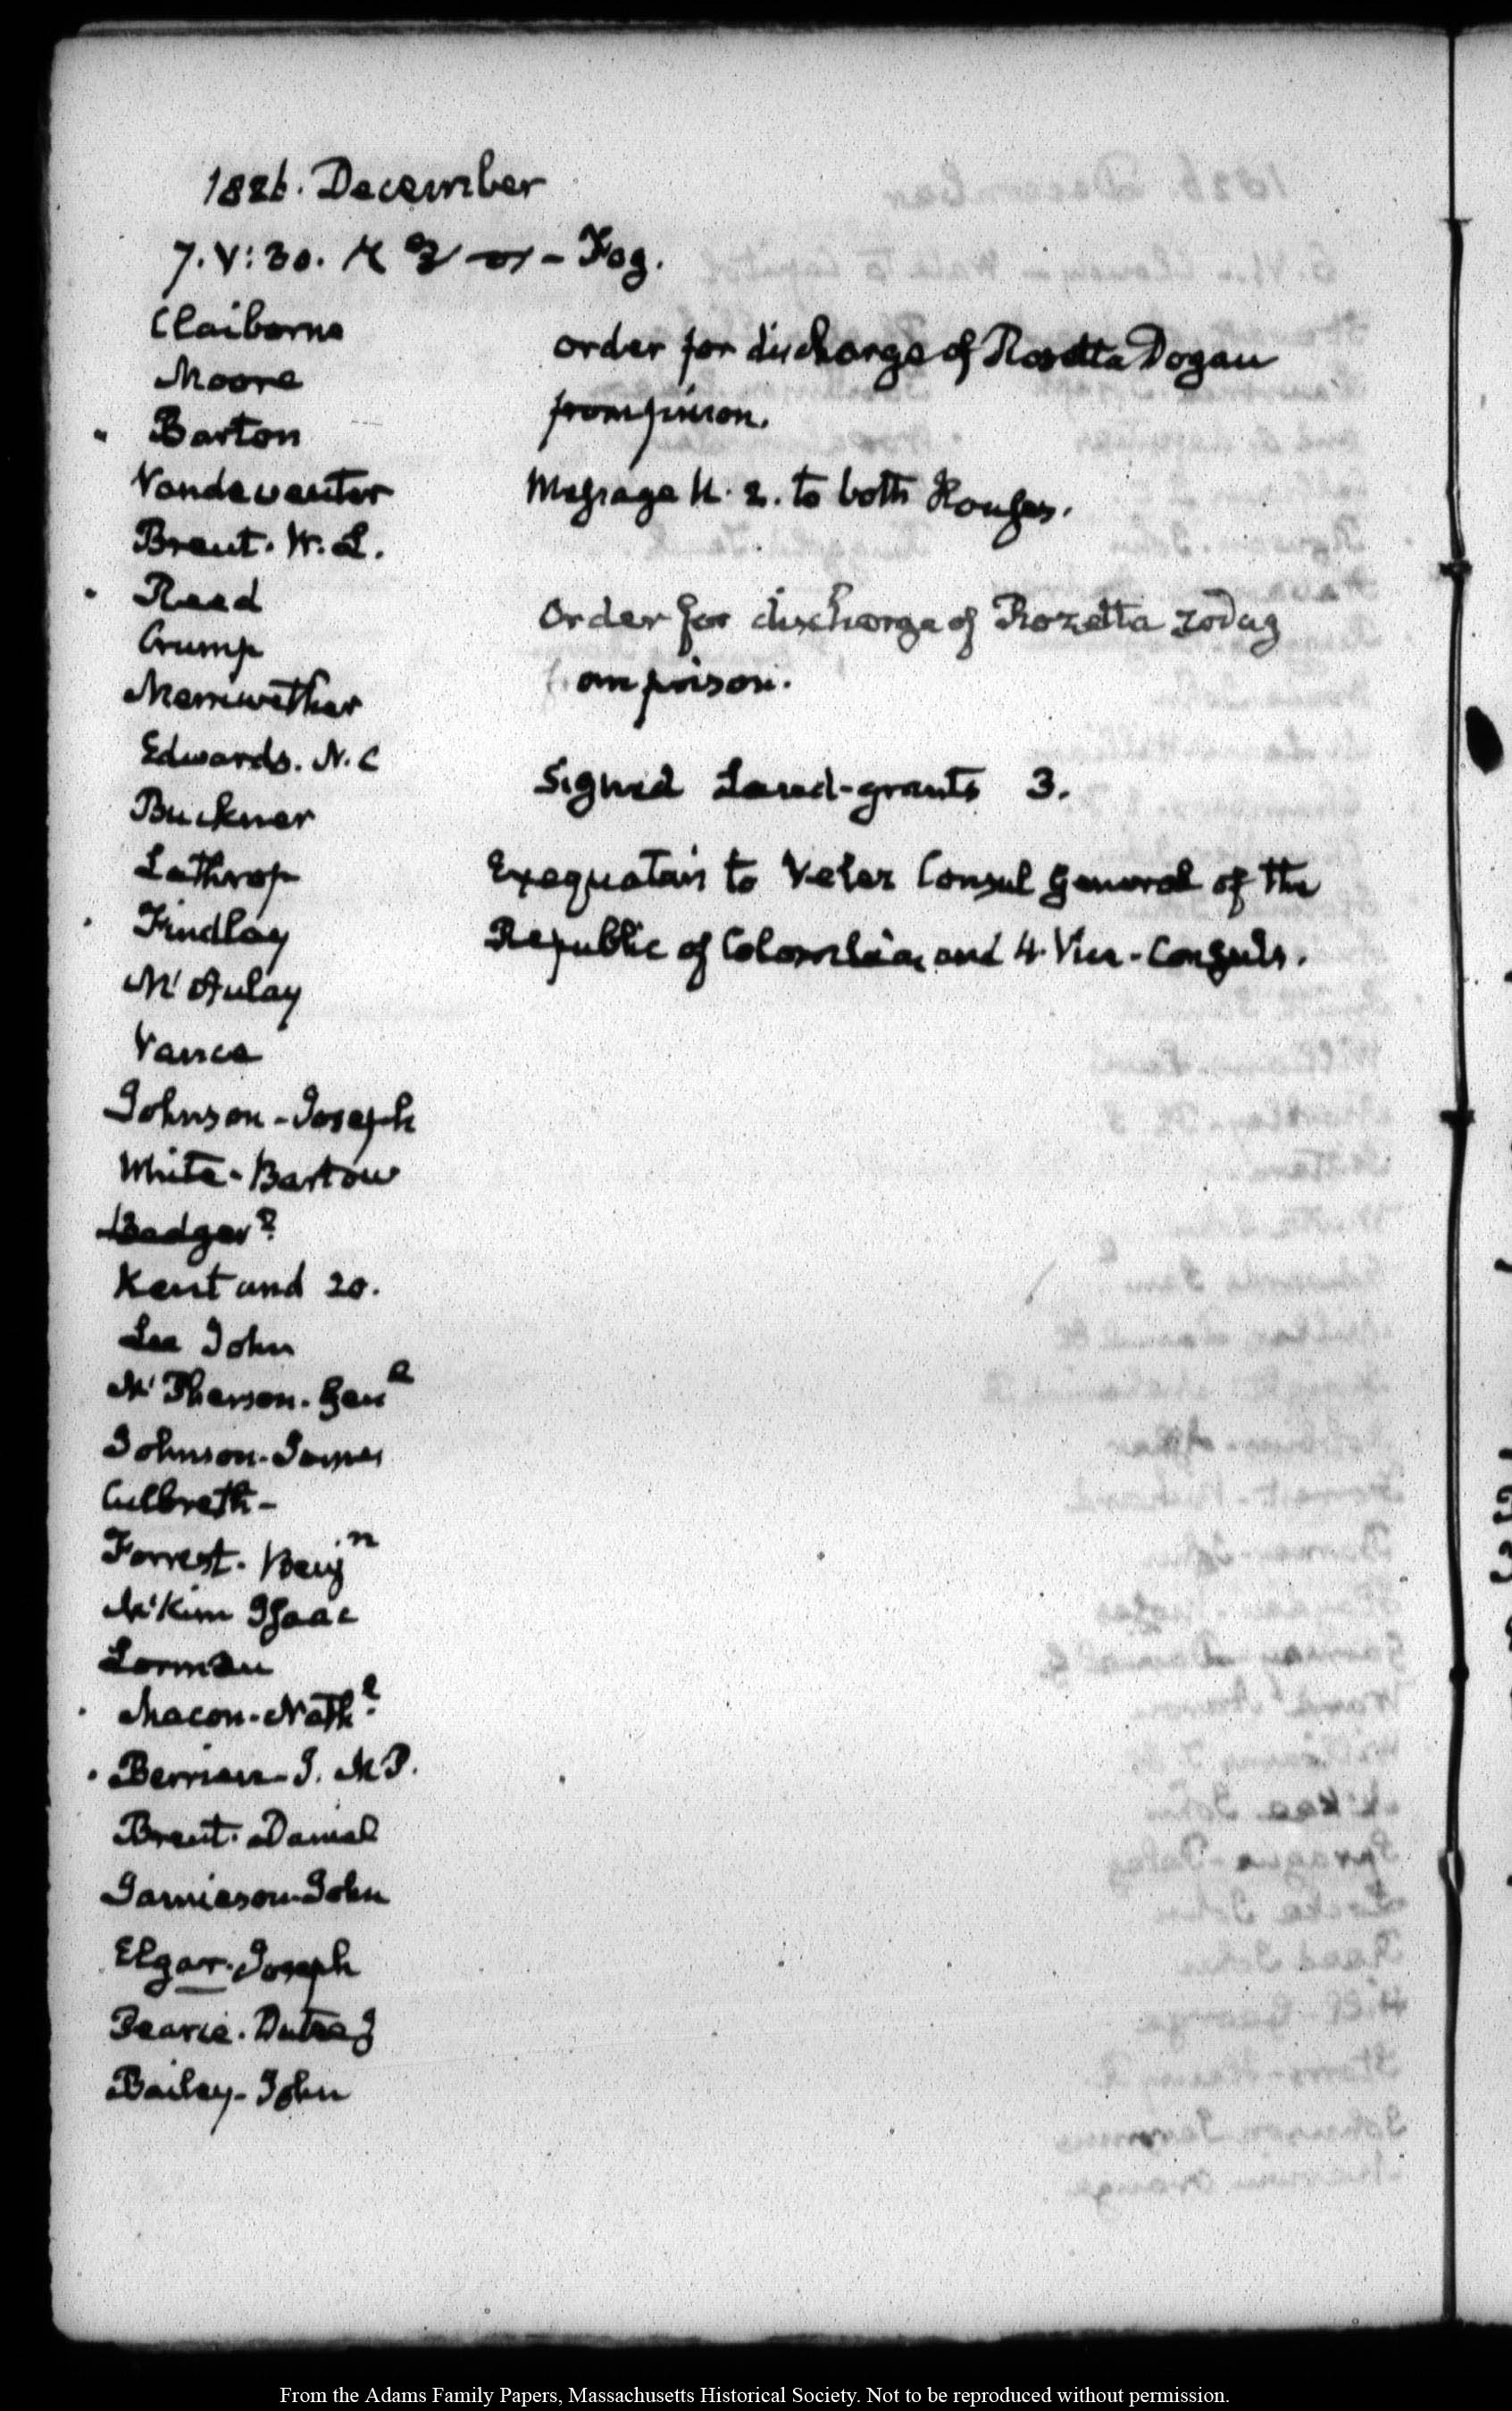 1826. December
7. V:30. - Fog.
Claiborne
Moore
Barton
Vandeventer
Brent. W. L.
Reed
Crump
Merriwether
Edwards. N. C
Buckner
Lathrop
Findlay
McAulay
Vance
Johnson - Joseph
White - Bartow
Badger?
Kent and 20.
Lee John
McPherson. Genl
Johnson - James
Culbreth -
Forrest. Benjn
McKim Isaac
Lorman
Macon - Nathl
Berrien - J. McP.
Brent. Daniel
Jamieson John
Elgar. Joseph
Pearce. Dutee J
Bailey - John
order for discharge of Rosetta
from prison.
Message N. 2. to both Houses.
Order for discharge of Rozetta
from prison.
Signed Land-grants 3.
Exequaturs to Velez Consul General of the
Republic of Colombia, and 4 Vice-Consuls.
From the Adams Family Papers, Massachusetts Historical Society. Not to be reproduced without permission.